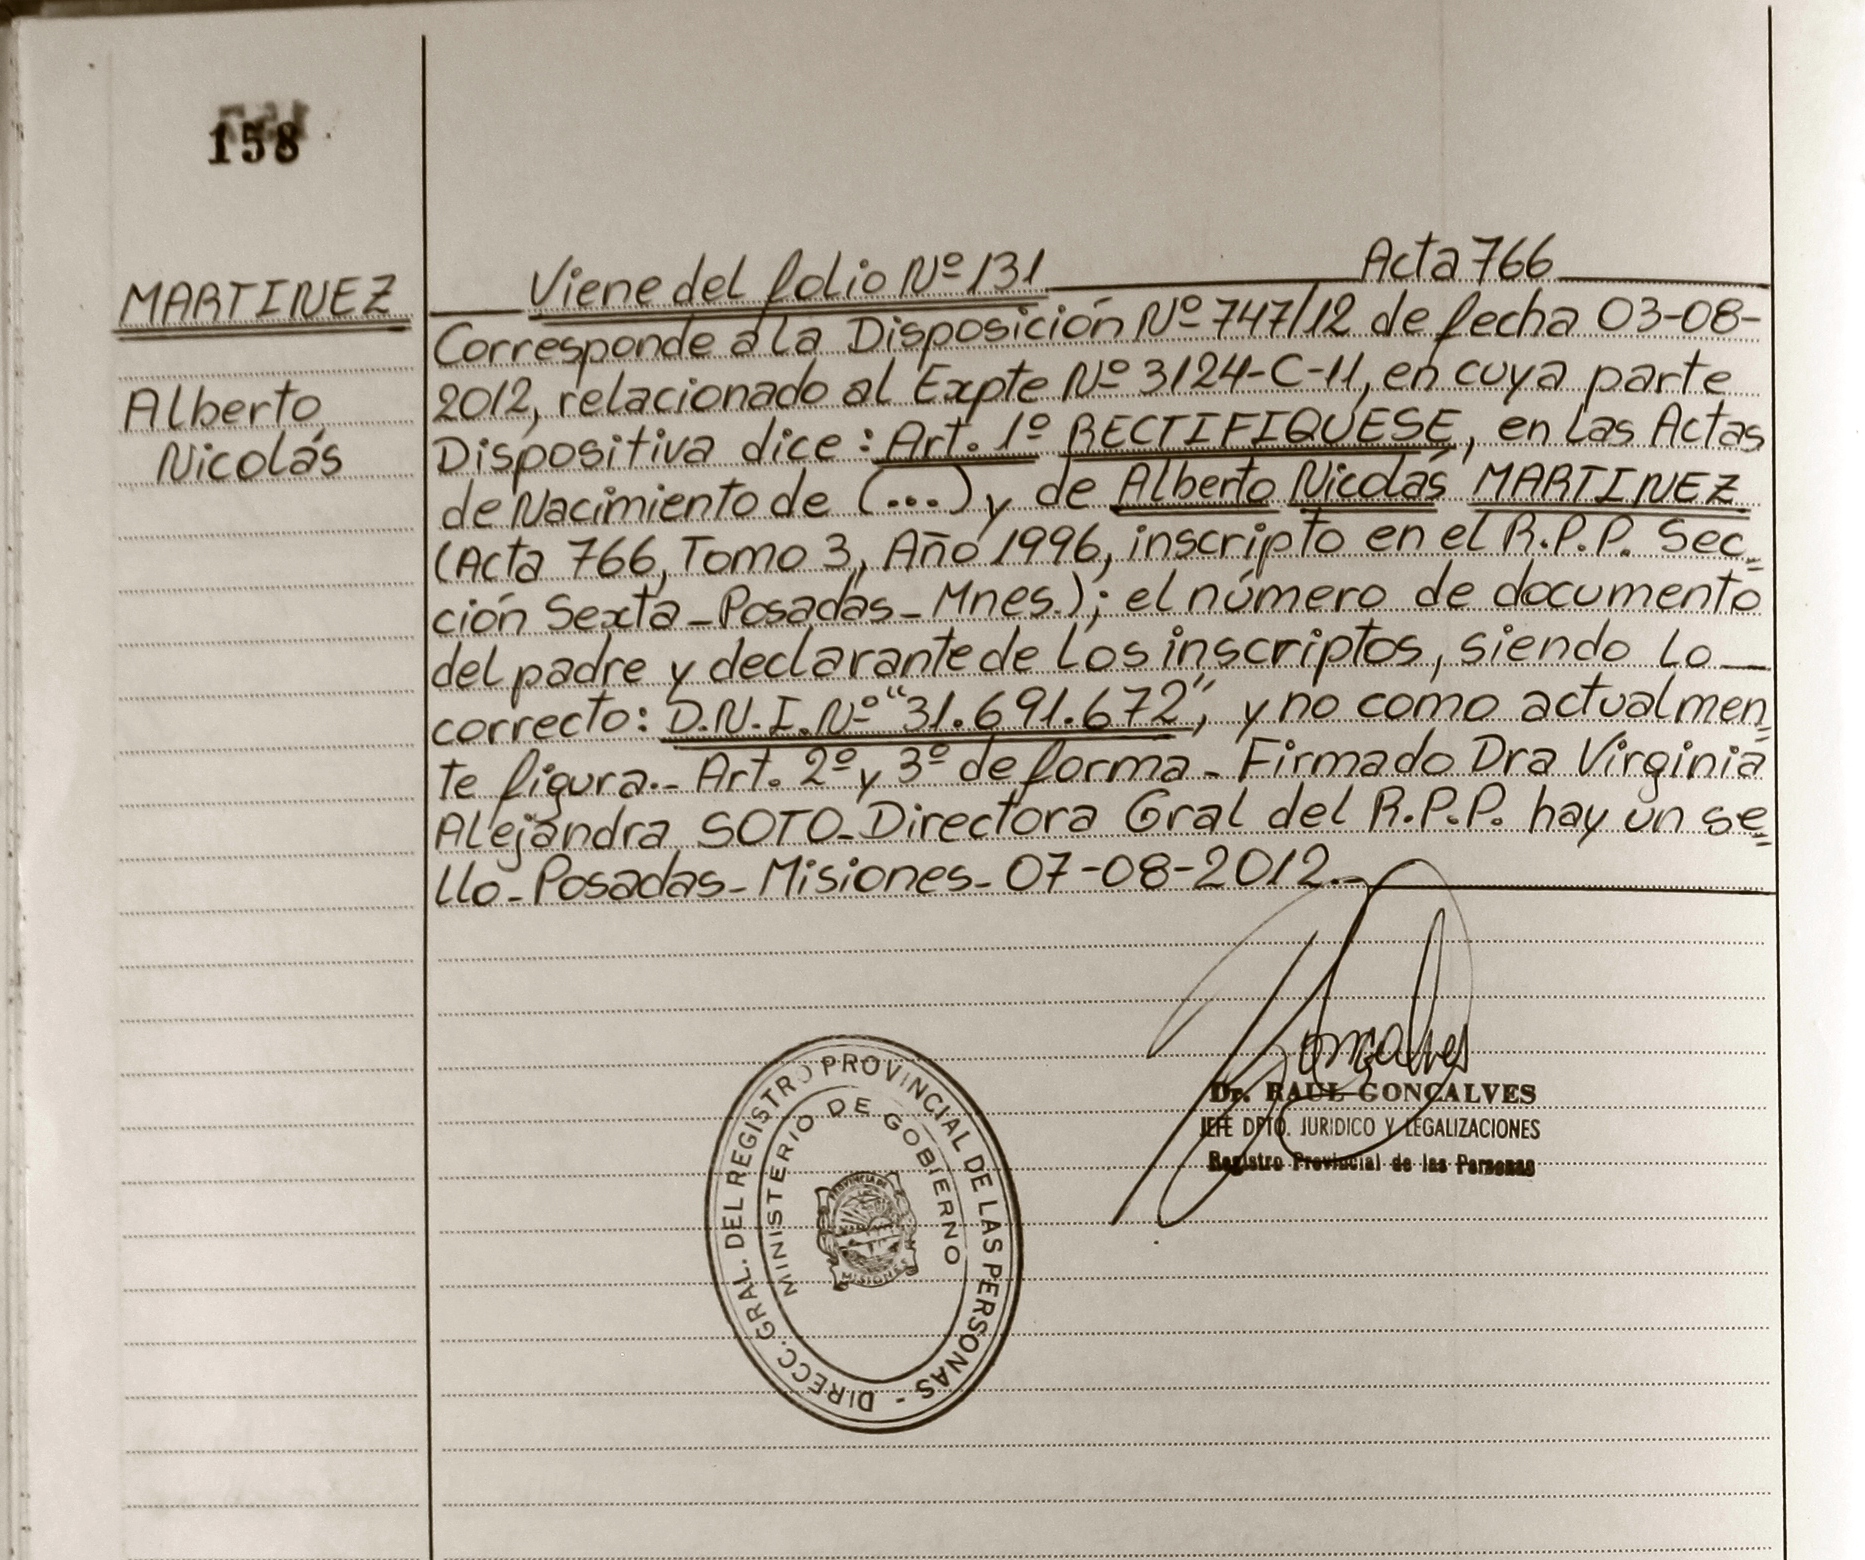 158
MARTINEZ
Alberto
Nicolás
Viene del folio Nº 131 Acta 766
Corresponde a la Disposición Nº 747/12 de fecha 03-08-
2012, relacionado al Expte Nº 3124-C-11, en cuya parte
Dispositiva dice: Art. 1º RECTIFIQUESE, en las Actas
de Nacimiento de (...) y de Alberto Nicolás MARTINEZ
(Acta 766, Tomo 3, Año 1996, inscripto en el R.P.P. Sec=
ción Sexta-Posadas-Mnes.); el número de documento
del padre y declarante de los inscriptos, siendo lo
correcto: D.N.I. Nº "31.691.672", y no como actualmen=
te figura.- Art. 2º y 3º de forma - Firmado Dra Virginia
Alejandra SOTO-Directora Gral del R.P.P. hay un se=
llo-Posadas-Misiones-07-08-2012.-
Goncalves
Dr. RAUL GONCALVES
JEFE DPTO. JURIDICO Y LEGALIZACIONES
Registro Provincial de las Personas
DIRECC. GRAL. DEL REGISTRO PROVINCIAL DE LAS PERSONAS -
MINISTERIO DE GOBIERNO
PROVINCIA DE
MISIONES